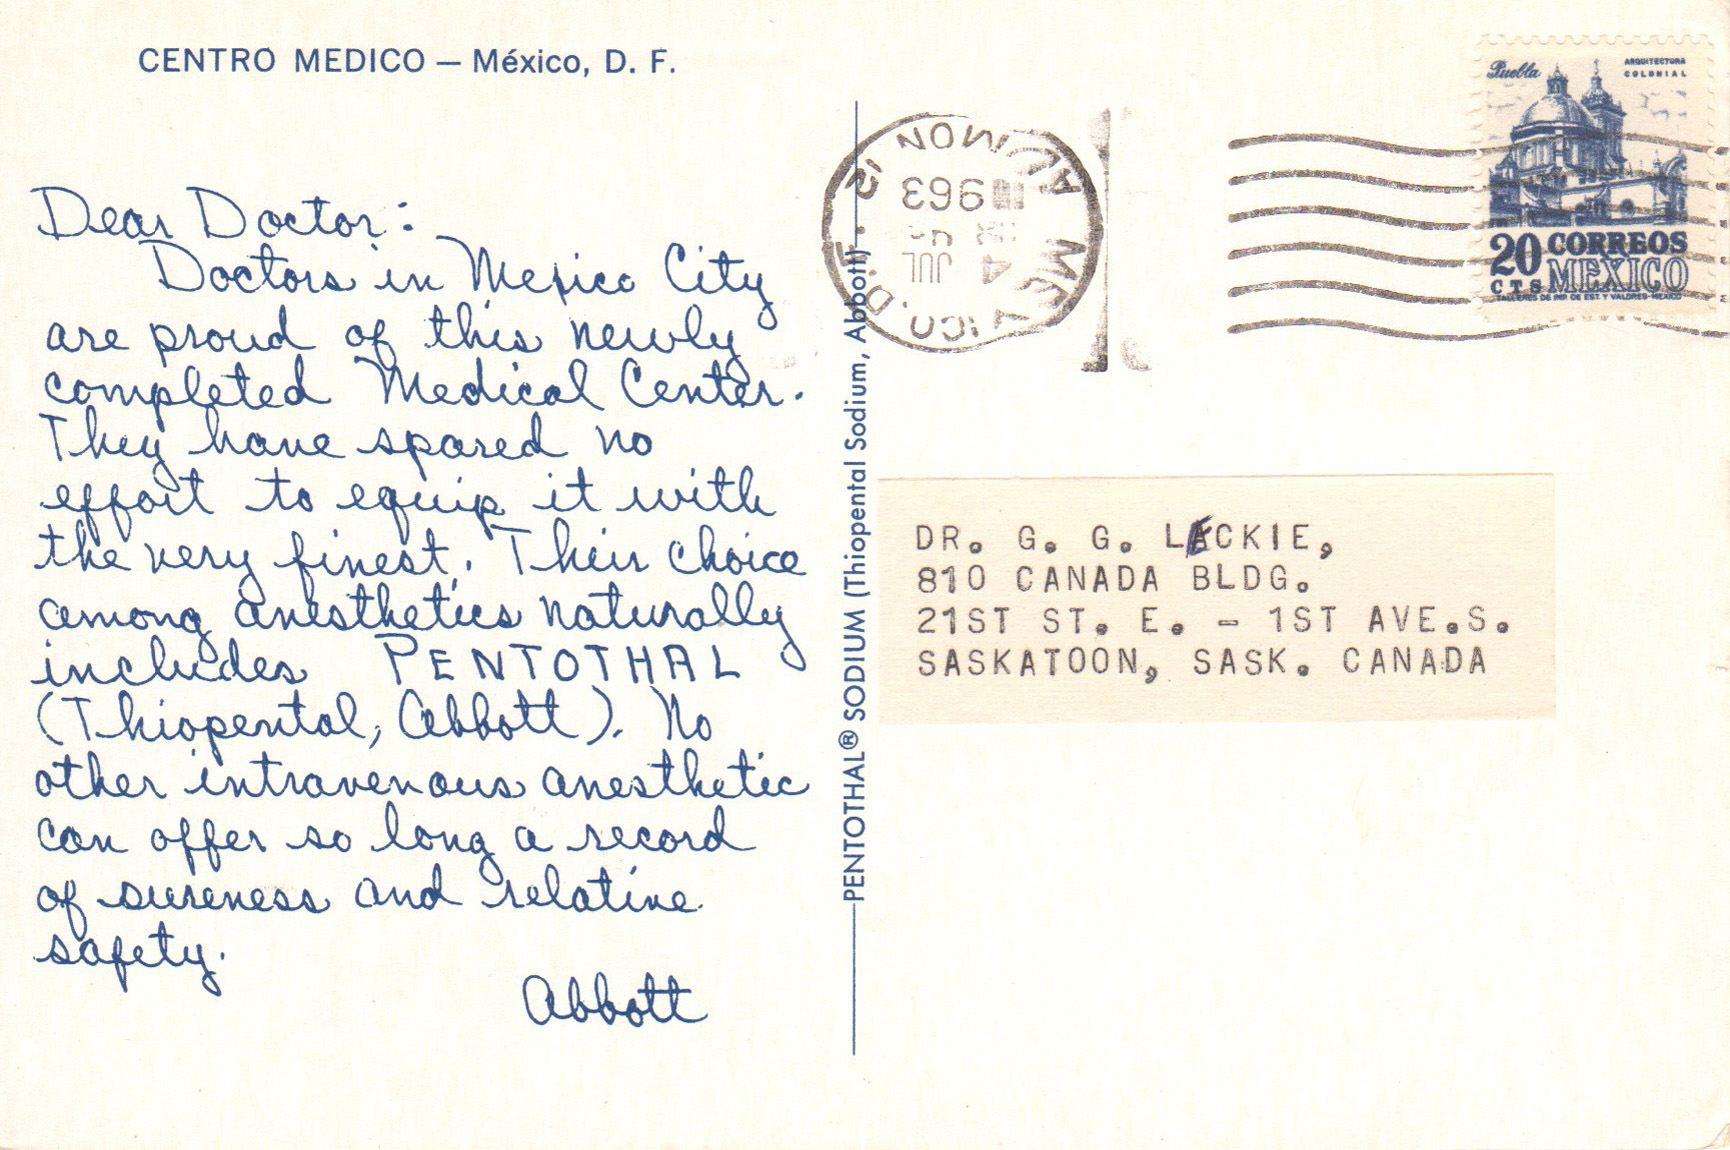 CENTRO MEDICO — México, D. F.
Dear Doctor:
Doctors in Mexico City
are proud of this newly
completed Medical Center.
They have spared no
effort to equip it with
the very finest. Their choice
among anesthetics naturally
includes PENTOTHAL
(Thiopental, Abbott). No
other intravenous anesthetic
can offer so long a record
of sureness and relative
safety.
Abbott
PENTOTHAL® SODIUM (Thiopental Sodium, Abbott)
MEXICO, D.F.
JUL
1963
Puebla
ARQUITECTURA
COLONIAL
20 CORREOS
CTS MEXICO
TALLERES DE IMP. DE EST. Y VALORES-MEXICO
DR. G. G. LECKIE,
810 CANADA BLDG.
21ST ST. E. - 1ST AVE.S.
SASKATOON, SASK. CANADA